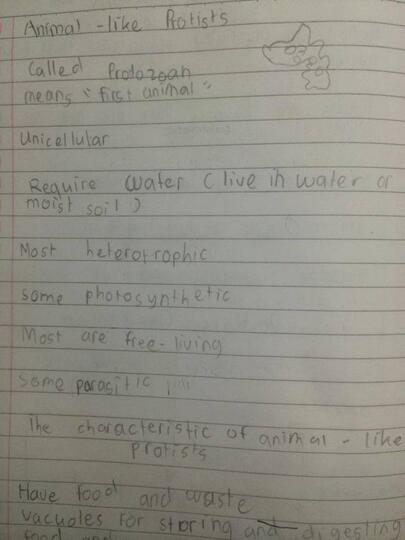 Animal -like Protists
Called Protozoan
means "first animal"
Unicellular
Require water (live in water or
moist soil)
Most heterotrophic
some photosynthetic
Most are free-living
some parasitic
The characteristic of animal - like
protists
Have food and waste
vacuoles for storing and digesting
food and